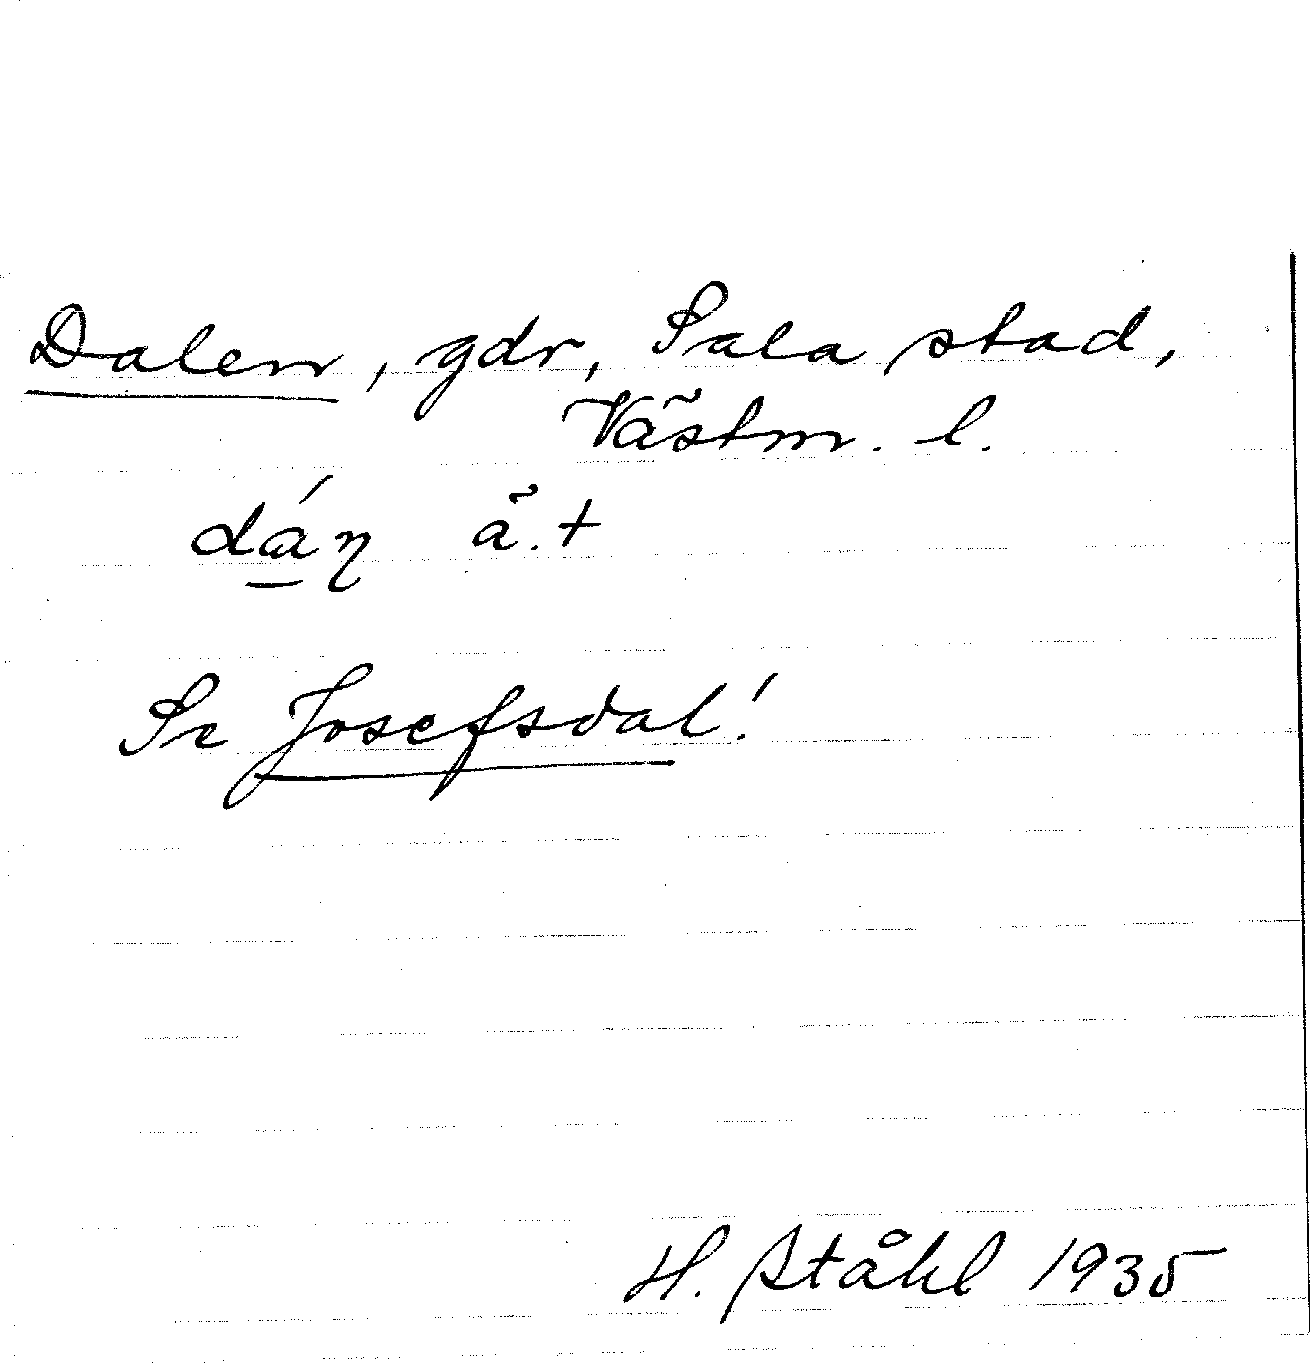 Dalen, gdr, Sala stad,
Västm. l.
dá̱ŋ ä.+
Se Josefsdal!
H. Ståhl 1935